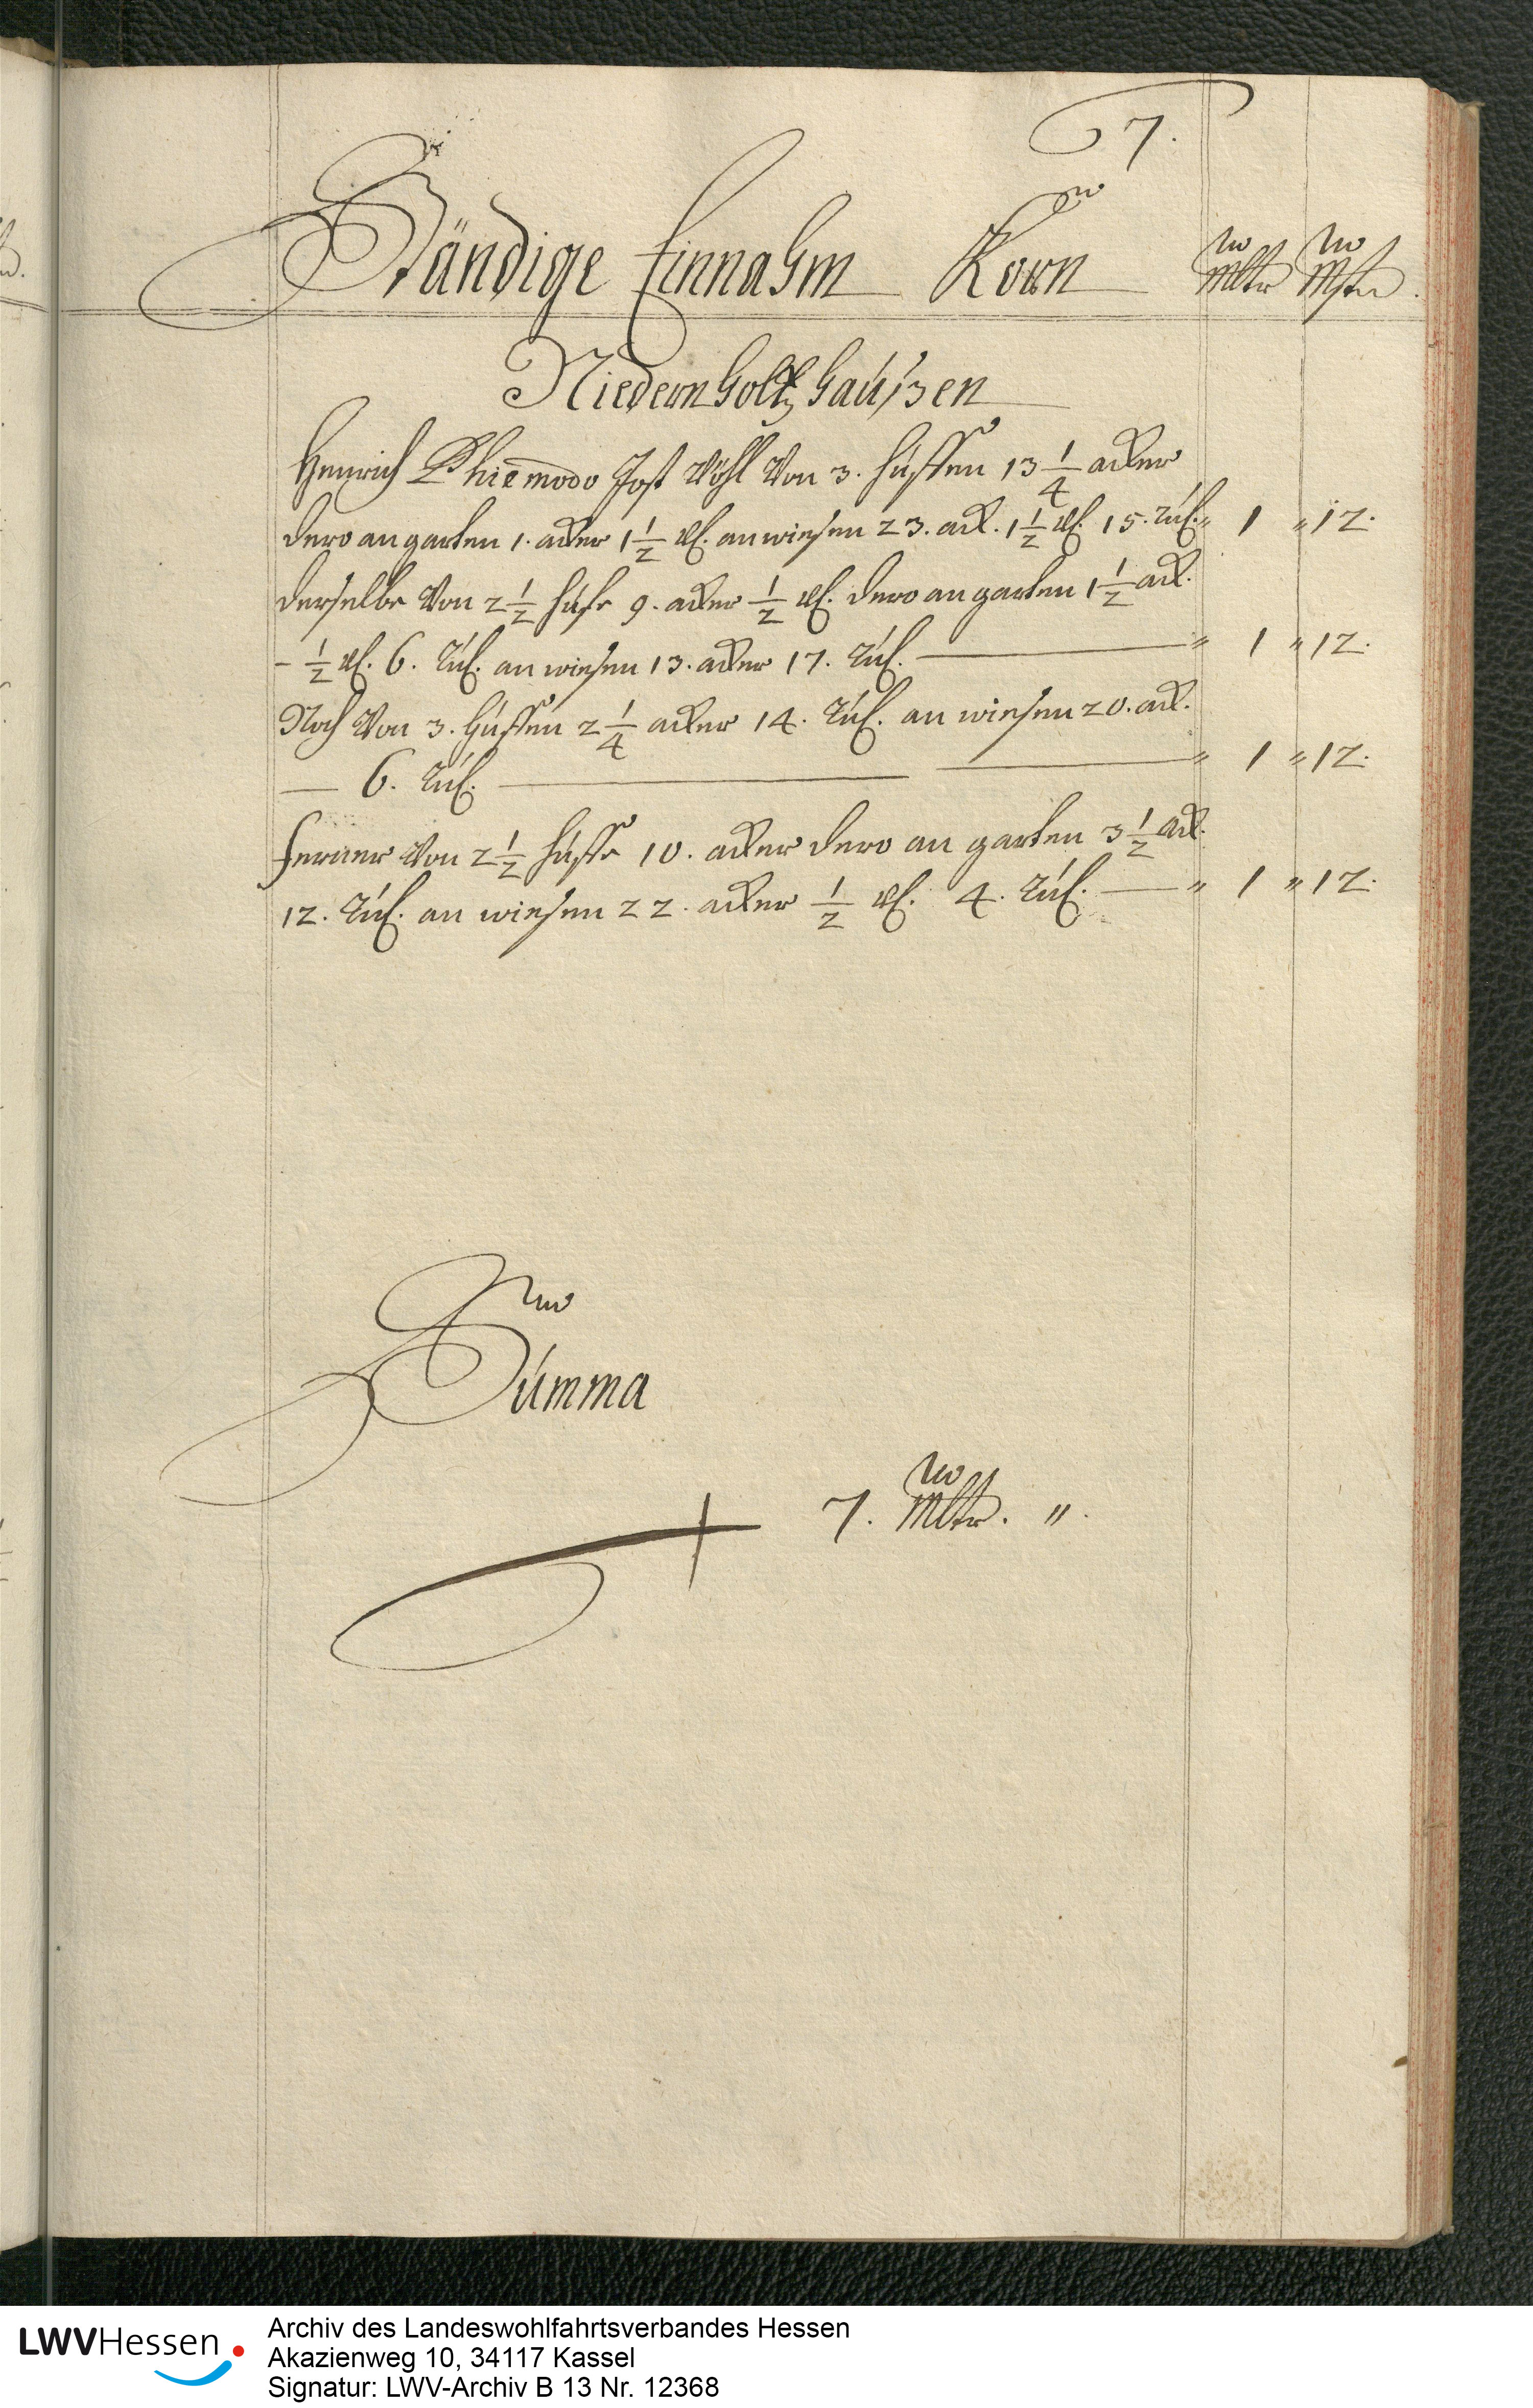 7.
Ständige Einnahm Korn Mltr Mstn.
Niedern Holtzhaußen
Henrich Thiemodo Jost Vöhl Von 3. Huffen 13 1/4 acker
dero an garten 1. acker 1 1/2 vl. an wiesen 23. ack. 1 1/2 vl. 15. Rut. " 1 " 12.
derselbe Von 2 1/2 Hufe 9. acker 1/2 vl. dero an garten 1 1/2 ack.
- 1/2 vl. 6. Rut. an wiesen 13. acker 17. Rut. " 1 " 12.
Noch Von 3. Huffen 2 1/4 acker 14. Rut. an wiesen 20. ack.
— 6. Rut. " 1 " 12.
ferner Von 2 1/2 Huffe 10. acker dero an garten 3 1/2 ack.
12. Rut. an wiesen 22. acker 1/2 vl. 4. Rut. — " 1 " 12.
Summa
7. Mltr. ".
LWVHessen
Archiv des Landeswohlfahrtsverbandes Hessen
Akazienweg 10, 34117 Kassel
Signatur: LWV-Archiv B 13 Nr. 12368